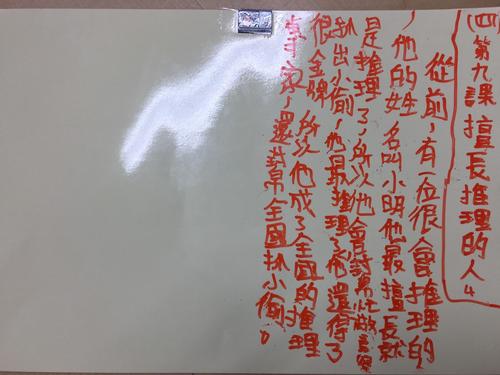 (四)第九課擅長推理的人4
從前,有一位很會推理的
,他的姓名叫小明他最擅長就
是推理了,所以他會幫忙做
扒出小偷,他最推理了他還得了
很金牌,所以他成了全國的推理
專家,還幫全國扒小偷。